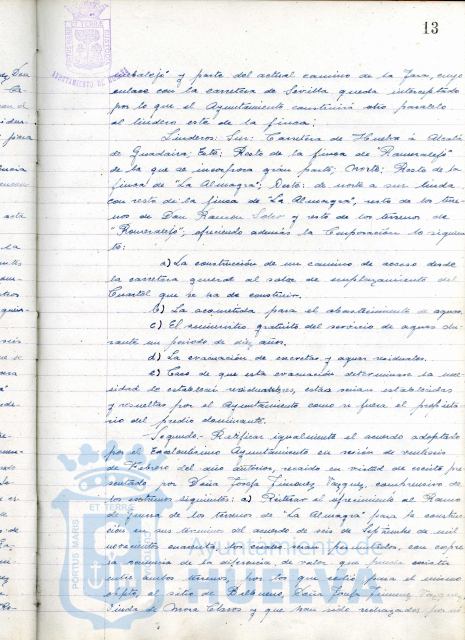 13
AYUNTAMIENTO DE HUELVA
y parte del actual camino de la Jara, cuyo
enlace con la carretera de Sevilla queda interceptado
por lo que el Ayuntamiento construirá otro paralelo
al lindero este de la finca;
Linderos: Sur: Carretera de Huelva a Alcalá
de Guadaira; Este: Resto de la finca de "Romeralejo"
de la que se incorpora gran parte; Norte: Resto de la
finca de "La Almagra"; Oeste: de norte a sur linda
con resto de la finca de "La Almagra", resto de los terre-
nos de Don Ramón Soler y resto de los terrenos de
"Romeralejo"; ofreciendo además la Corporación lo siguien-
te:
a) La construcción de un camino de acceso desde
la carretera general al solar de emplazamiento del
Cuartel que se ha de construir.
b) La acometida para el abastecimiento de aguas.
c) El suministro gratuito del servicio de aguas du-
rante un periodo de diez años.
d) La evacuación de excretas y aguas residuales.
e) Caso de que esta evacuación determinase la nece-
sidad de establecer servidumbres, estas serían establecidas
y resueltas por el Ayuntamiento como si fuera el propieta-
rio del predio dominante.
Segundo.- Ratificar igualmente el acuerdo adoptado
por el Excelentísimo Ayuntamiento en sesión de veintiseis
de Febrero del año anterior, recaido en virtud de escrito pre-
sentado por Doña Josefa Jimenez Vazquez, comprensivo de
los extremos siguientes: a) Reiterar el ofrecimiento al Ramo
de Guerra de los terrenos de "La Almagra" para la construc-
ción en sus términos del acuerdo de seis de Septiembre de mil
novecientos cuarenta, los cuales han sido permutados, con expre-
sa renuncia de la diferencia de valor que pueda existir
entre ambos terrenos, por los que cedió, para el mismo
objeto, al sitio de Balbueno, Doña Josefa Jimenez Vazquez,
Viuda de Mora Claros y que han sido rechazados por no
PORTUS MARIS
ET TERRÆ
Ayuntamiento de
HUELVA